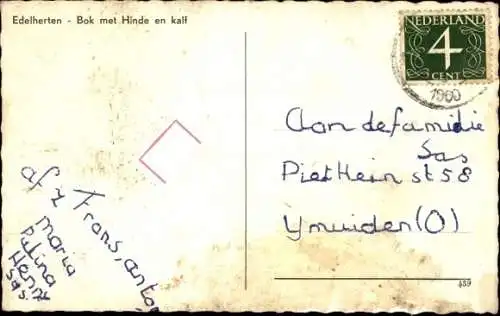 Edelherten - Bok met Hinde en kalf
NEDERLAND
4
CENT
1960
Aan de familie
Sas
Piet Hein st 58
Ymuiden (O)
af z Frans, anton
Maria
Petina
Henny
Sas.
439